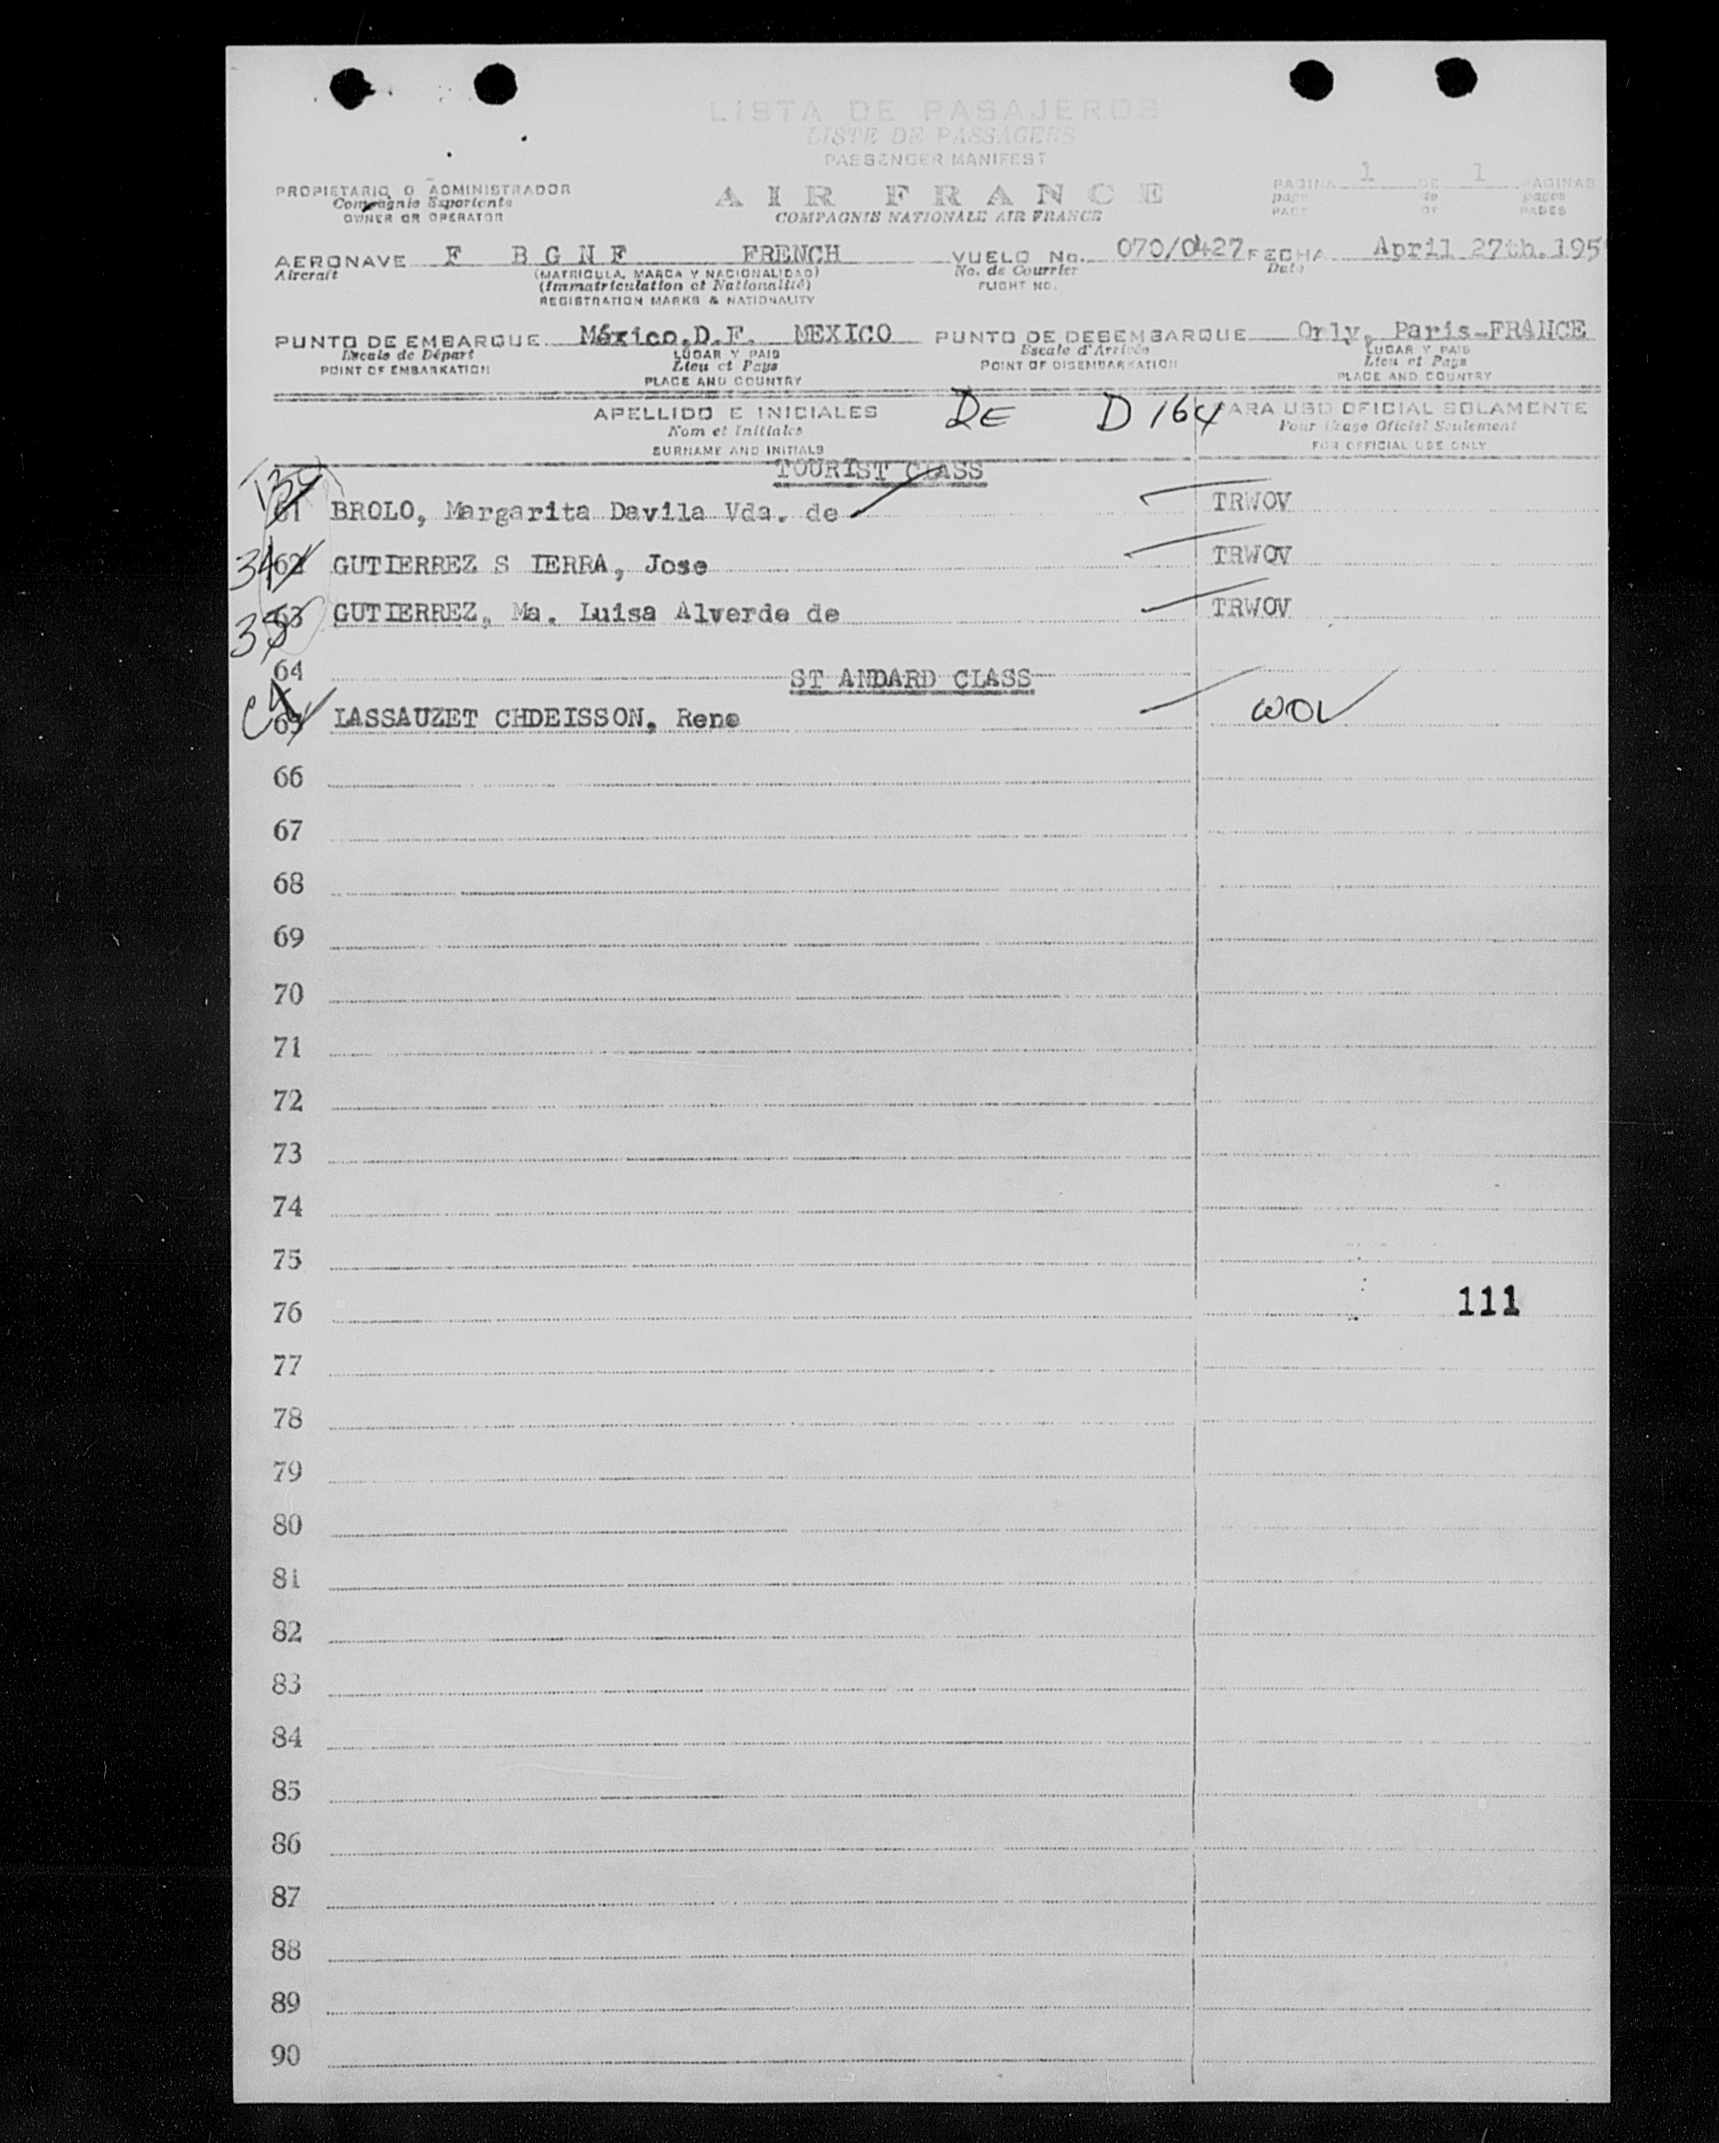 LISTA DE PASAJEROS
LISTE DE PASSAGERS
PASSENGER MANIFEST
PROPIETARIO O ADMINISTRADOR
Compagnie Exportante
OWNER OR OPERATOR
AIR FRANCE
COMPAGNIE NATIONALE AIR FRANCE
PAGINA 1 DE 1 PAGINAS
page de pages
PAGE OF PAGES
AERONAVE F B G N F FRENCH VUELO No. 070/0427 FECHA April 27th.195
Aircraft (MATRICULA, MARCA Y NACIONALIDAD) No. de Courrier Date
(Immatriculation et Nationalité) FLIGHT NO.
REGISTRATION MARKS & NATIONALITY
PUNTO DE EMBARQUE México,D.F. MEXICO PUNTO DE DESEMBARQUE Orly, Paris-FRANCE
Escale de Départ LUGAR Y PAIS Escale d'Arrivée LUGAR Y PAIS
POINT OF EMBARKATION Lieu et Pays POINT OF DISEMBARKATION Lieu et Pays
PLACE AND COUNTRY PLACE AND COUNTRY
APELLIDO E INICIALES DE D 164 PARA USO OFICIAL SOLAMENTE
Nom et Initiales Pour Usage Oficiel Seulement
SURNAME AND INITIALS FOR OFFICIAL USE ONLY
TOURIST CLASS
61 BROLO, Margarita Davila Vda. de TRWOV
34 62 GUTIERREZ S IERRA, Jose TRWOV
35 63 GUTIERREZ, Ma. Luisa Alverde de TRWOV
64 ST ANDARD CLASS
C4 65 LASSAUZET CHDEISSON, Rene WOV
66
67
68
69
70
71
72
73
74
75
76 111
77
78
79
80
81
82
83
84
85
86
87
88
89
90